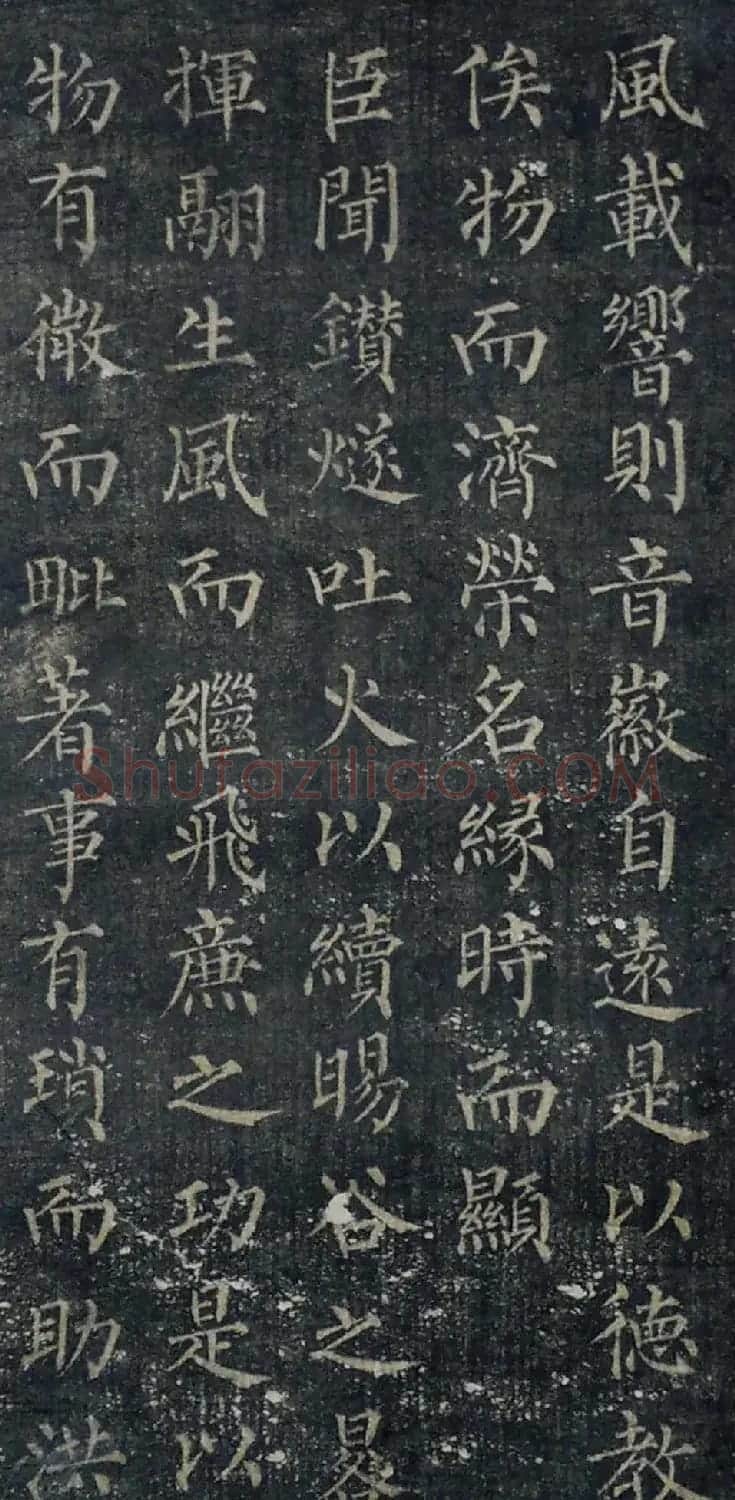 風載響則音徽自遠是以德教
俟物而濟榮名緣時而顯
臣聞鑽燧吐火以續暘谷之晷
揮翮生風而繼飛廉之功是以
物有微而毗著事有瑣而助洪
Shufaziliao.COM